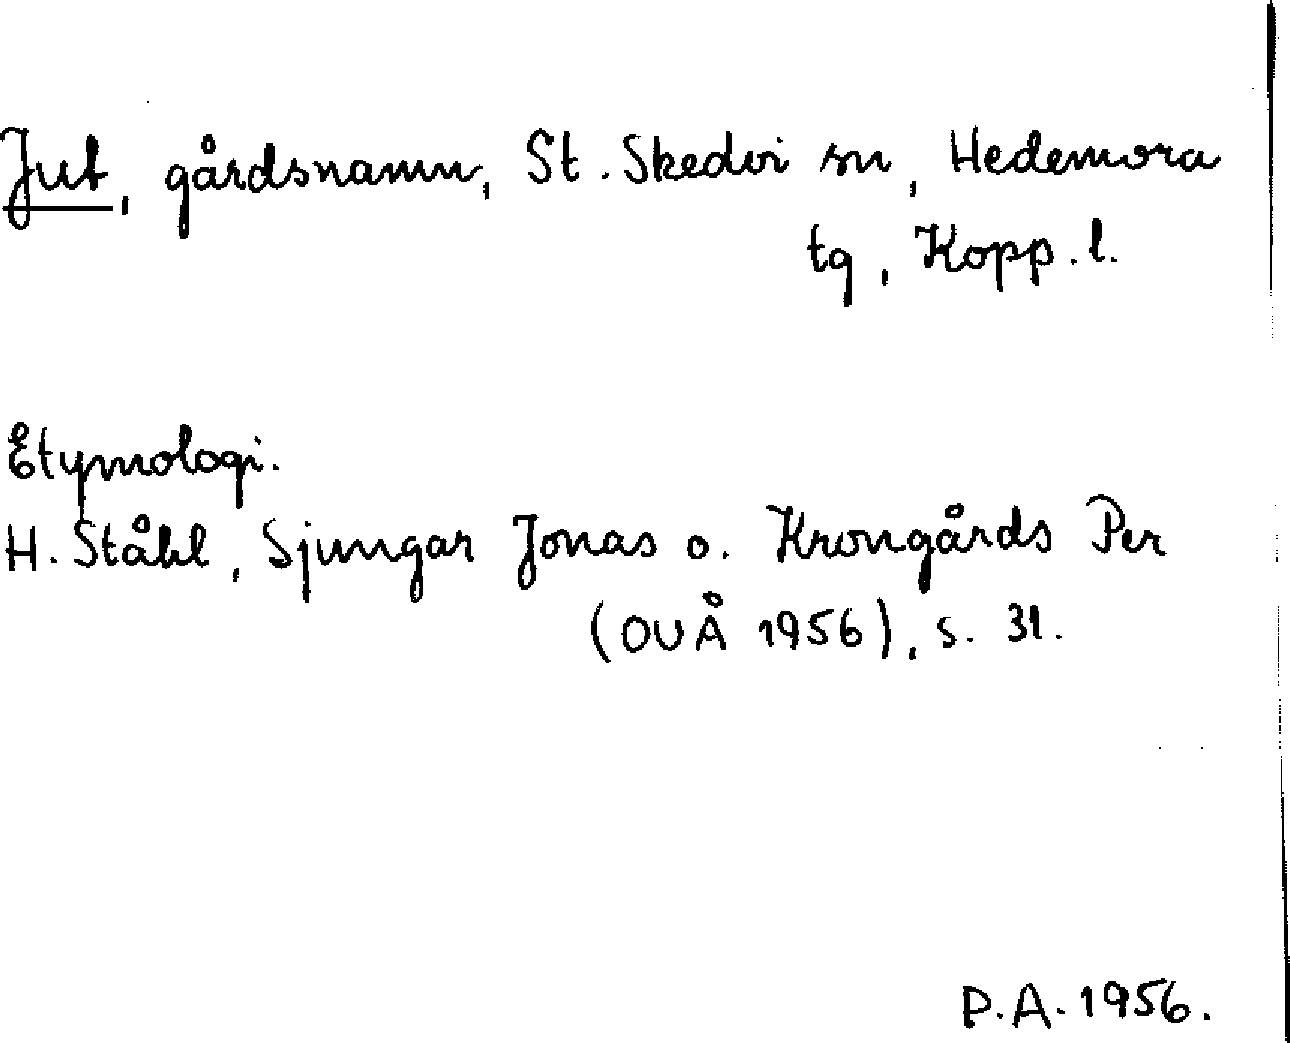 Jut, gårdsnamn, St. Skedvi sn, Hedemora
tg, Kopp. l.
Etymologi.
H. Ståhl, Sjungar Jonas o. Krongårds Per
(OUÅ 1956), s. 31.
P.A. 1956.